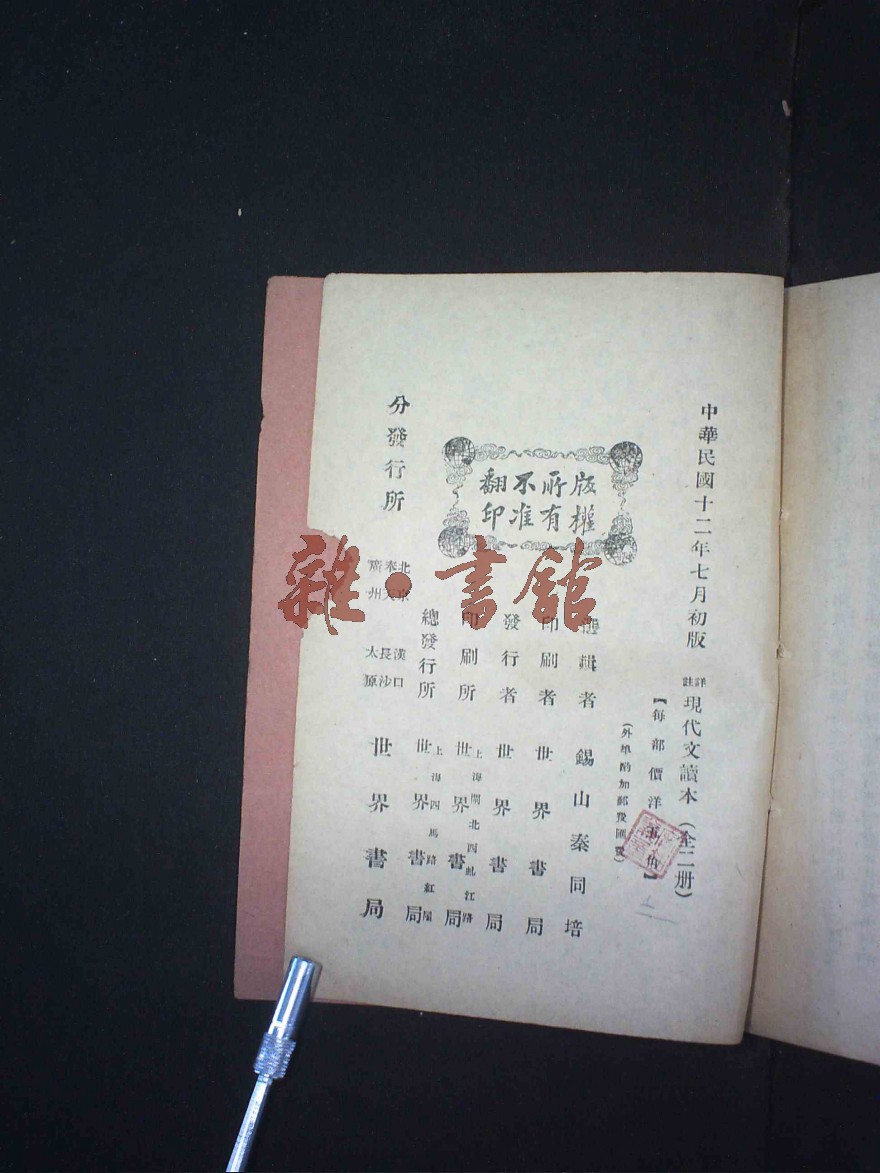 中華民國十二年七月初版
詳註現代文讀本（全二册）
【每部價洋
（外埠酌加郵費匯費）
版權
所有
不准
翻印
輯者 錫山秦同培
印刷者 世界書局
發行者 世界書局
印刷所 上海閘北西虬江路 世界書局
總發行所 上海四馬路紅屋 世界書局
分發行所 北京 奉天 廣州 漢口 長沙 太原 世界書局
雜·書館